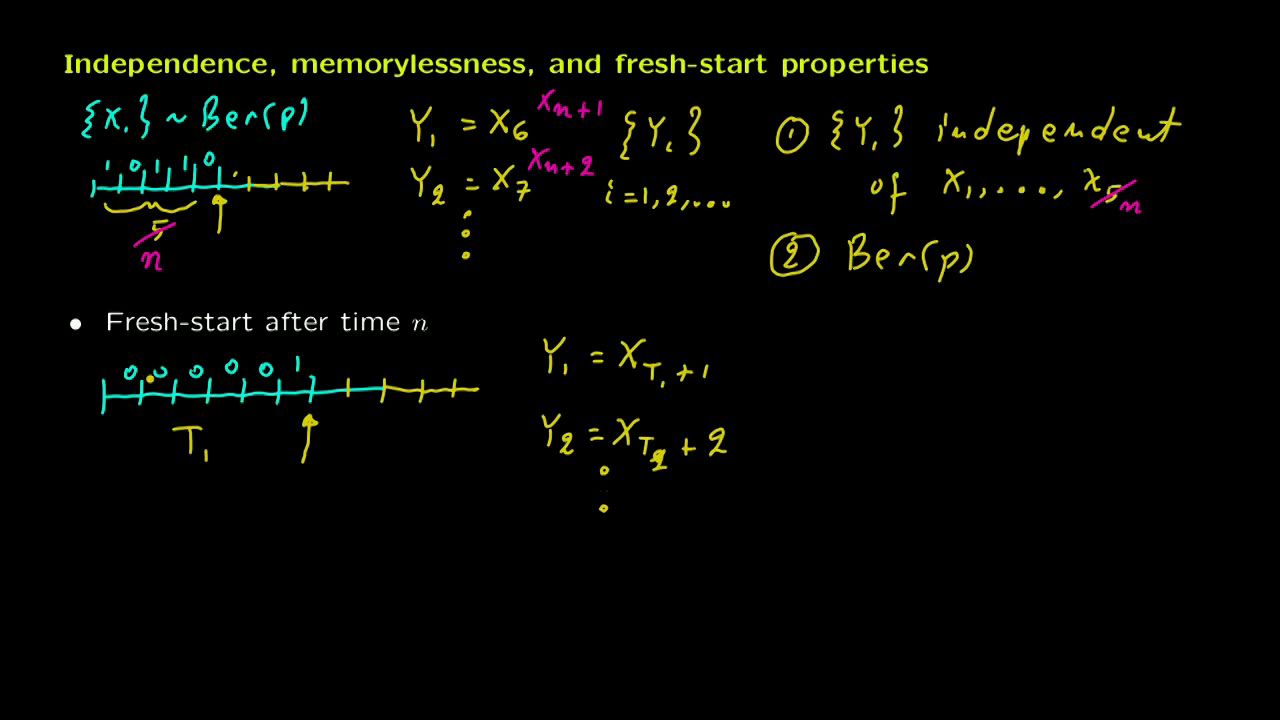 Independence, memorylessness, and fresh-start properties
{X_i} ~ Ber(p)
1 0 1 1 0
5
n
Y_1 = X_6 X_{n+1}
Y_2 = X_7 X_{n+2}
{Y_i}
i = 1, 2, ...
① {Y_i} independent
of X_1, ..., X_5 n
② Ber(p)
• Fresh-start after time n
0 0 0 0 0 1
T_1
Y_1 = X_{T_1 + 1}
Y_2 = X_{T_2} + 2